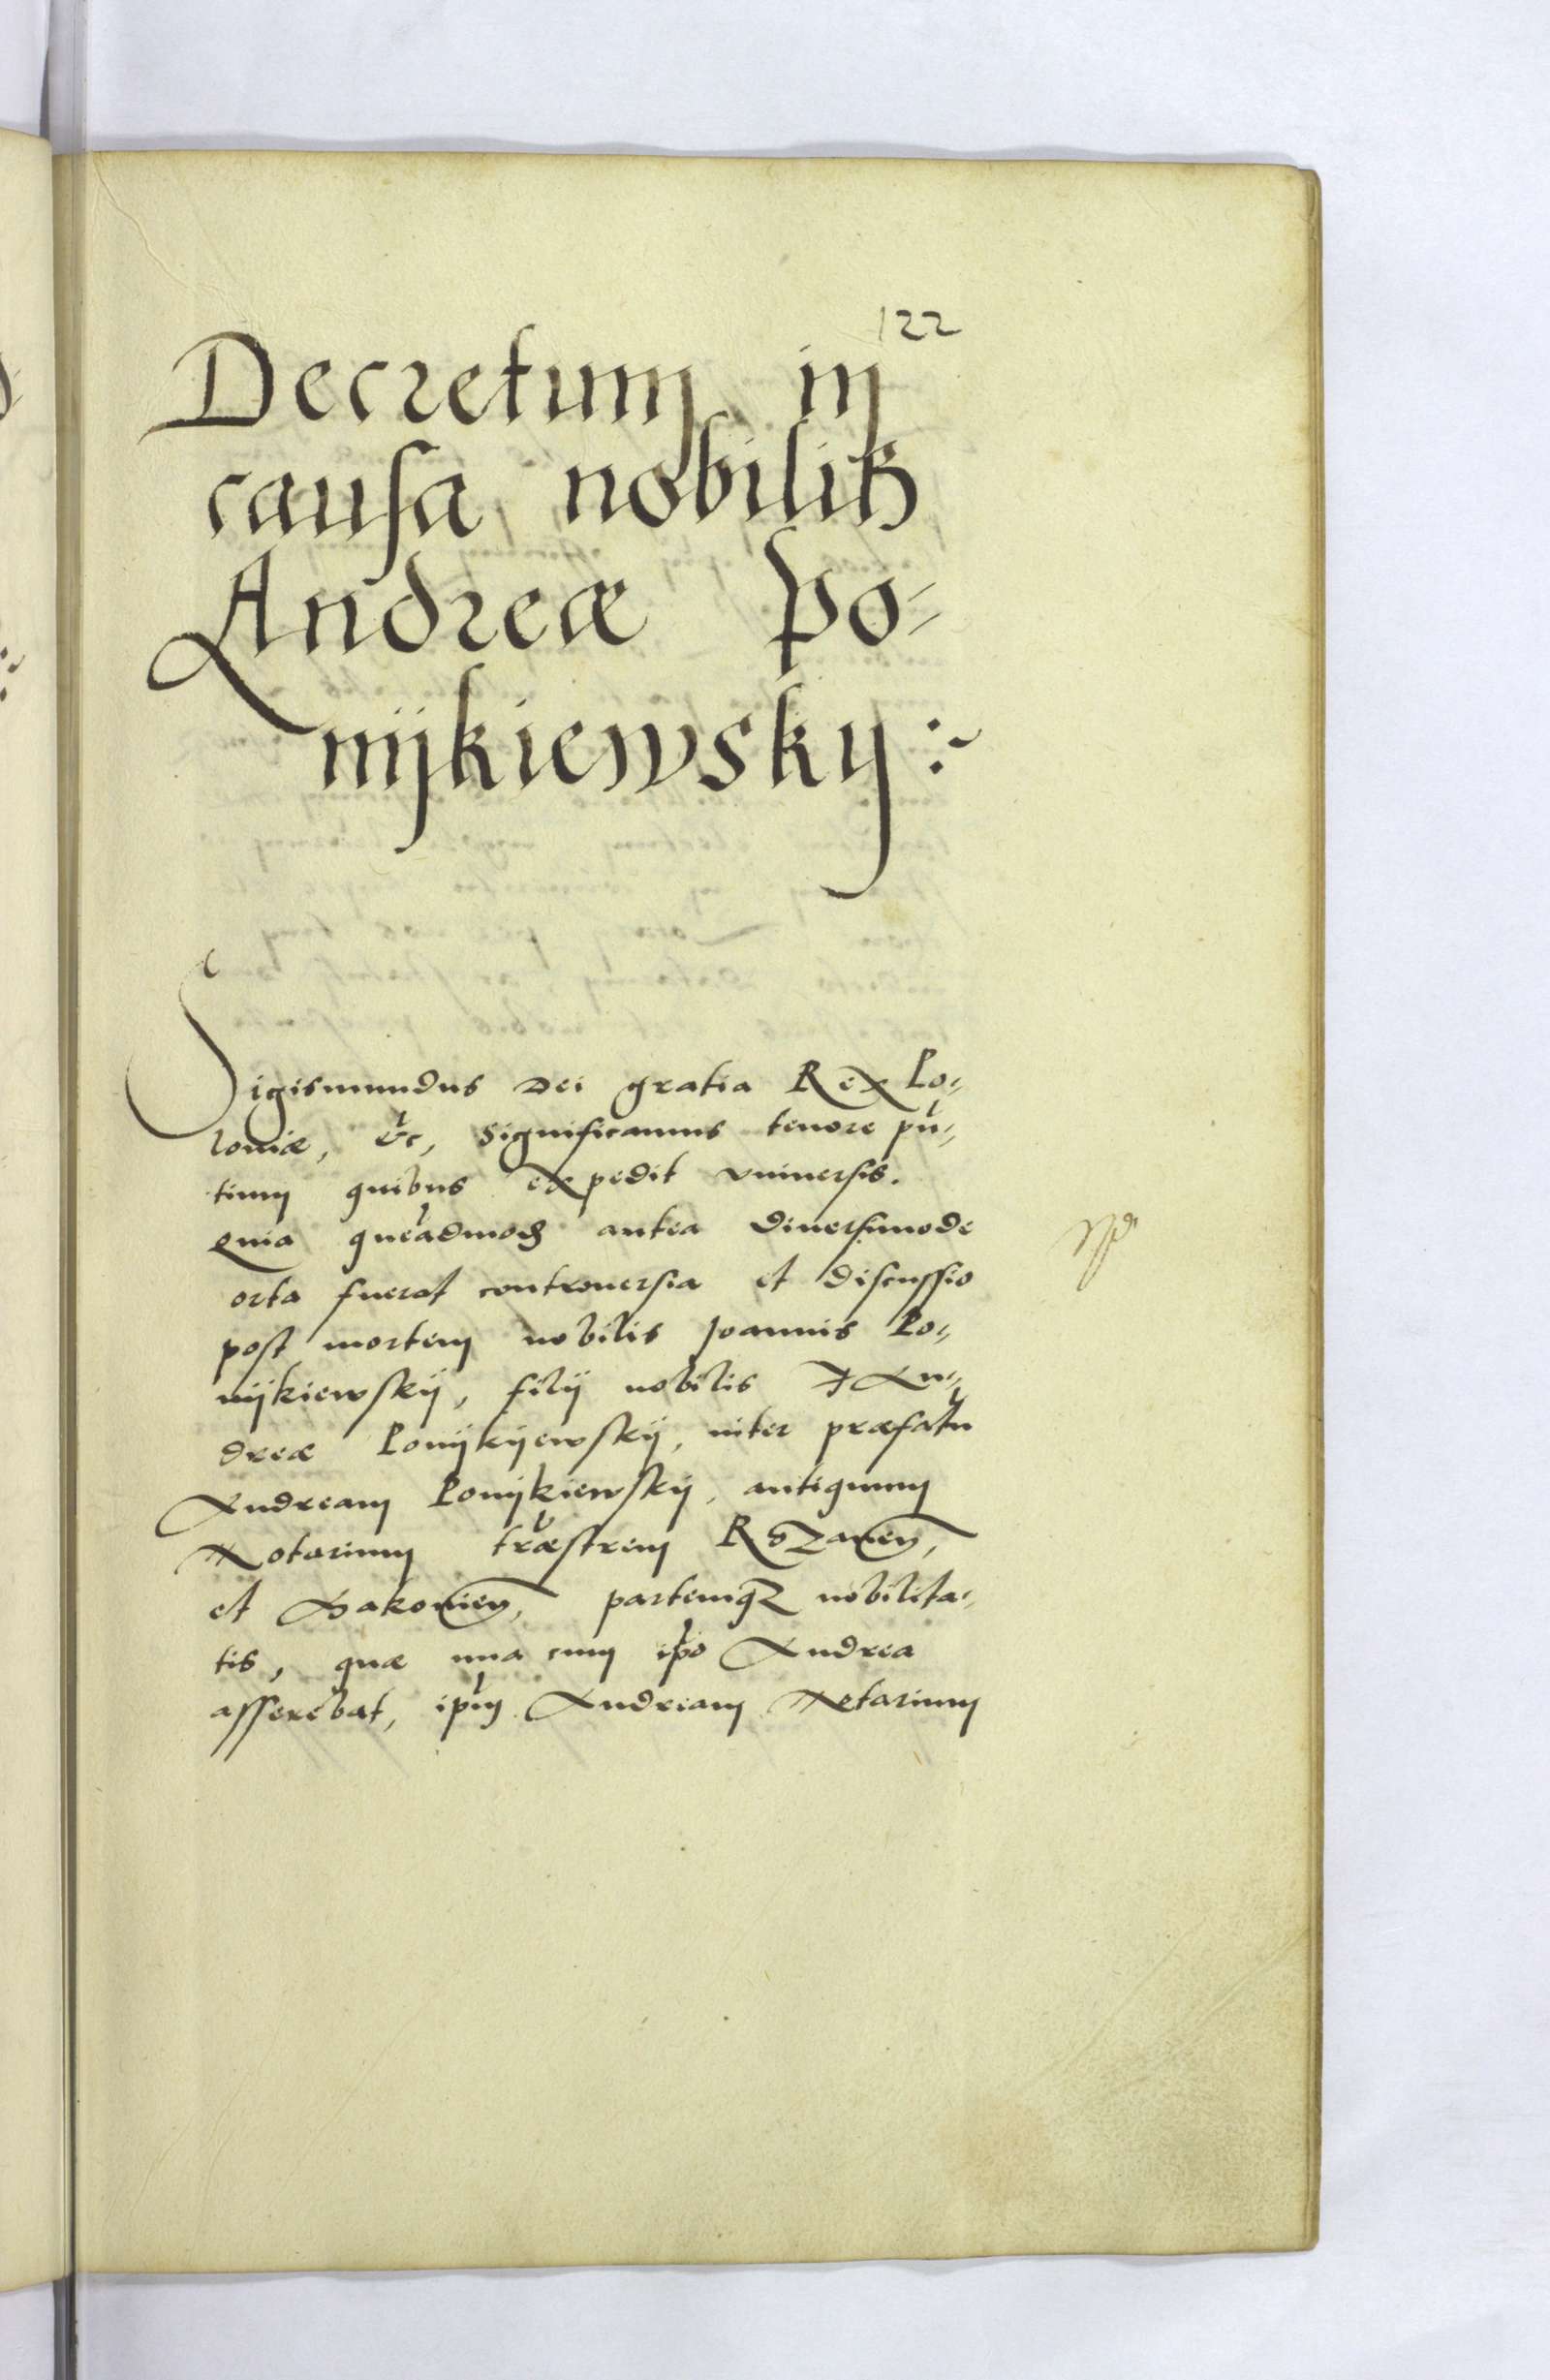 122
Decretum in
causa nobilis
Andreæ Po-
nijkiewsky
Sigismundus Dei gratia Rex Po-
loniæ, etc, Significamus tenore pn-
tium quibus expedit vniuersis.
Quia queadmod antea diuersimode
orta fuerat controuersia et discussio
post mortem nobilis Joannis Po-
nijkiewskij, filij nobilis An-
dreæ Ponijkijewskij, inter præfatu
Andream Ponijkiewskij, antiquum
Notarium træstrem Rozanen,
et Makouien, partemqz nobilita-
tis, quæ una cum ipo Andrea
asserebat, ipm Andream Notarium